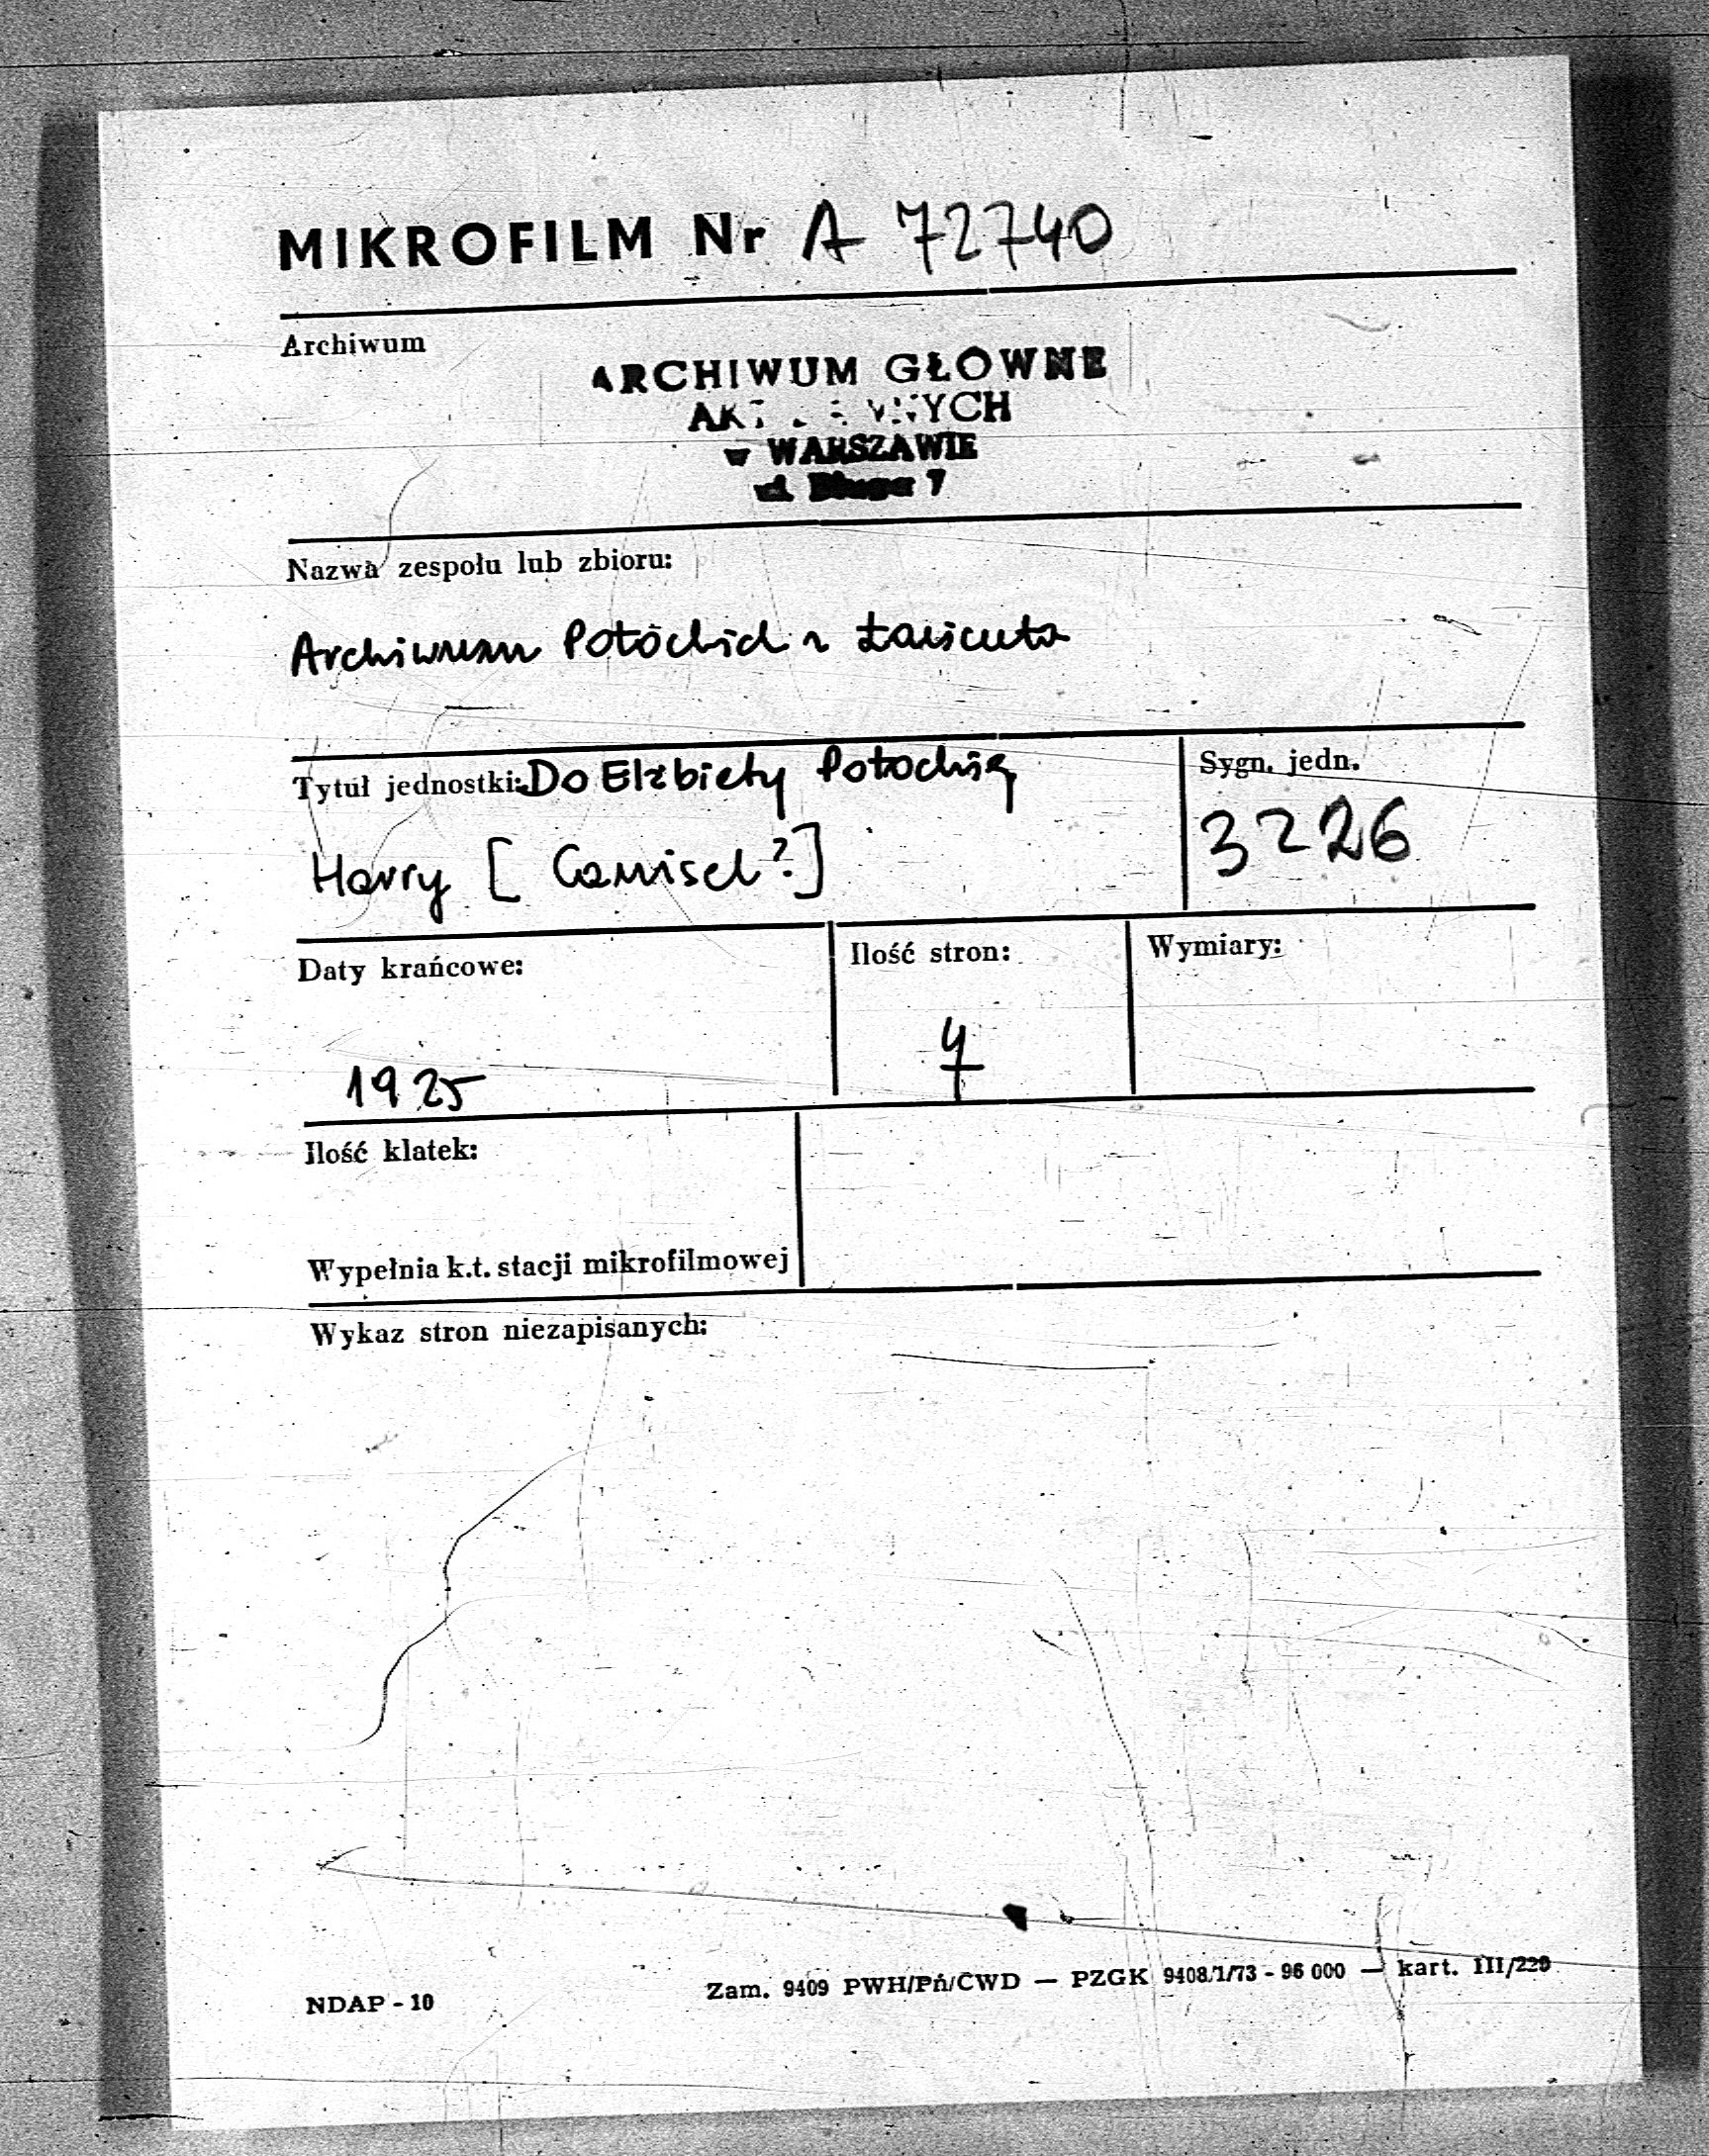 MIKROFILM Nr A 72740
Archiwum
ARCHIWUM GŁÓWNE
w WARSZAWIE
ul. Długa 7
Nazwa zespołu lub zbioru:
Archiwum Potockich z Łańcuta
Tytuł jednostki: Do Elżbiety Potockiej
Harry [ ?]
Sygn. jedn.
3226
Daty krańcowe:
1925
Ilość stron:
4
Wymiary:
Ilość klatek:
Wypełnia k.t. stacji mikrofilmowej
Wykaz stron niezapisanych:
NDAP - 10
Zam. 9409 PWH/Pń/CWD — PZGK 9408/1/73 - 96 000 — kart. III/220